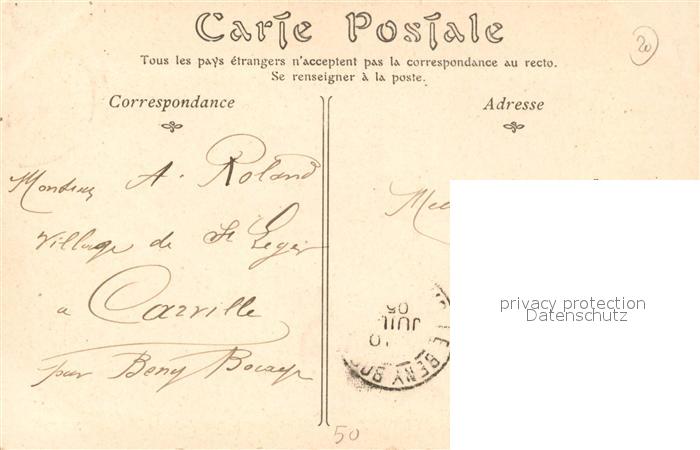 Carte Postale
Tous les pays étrangers n'acceptent pas la correspondance au recto.
Se renseigner à la poste.
Correspondance
Adresse
20
Monsieur A. Roland
Village de St Leger
a Carville
par Beny Bocage
50
10
JUIL
05
LE BENY BOC
privacy protection
Datenschutz